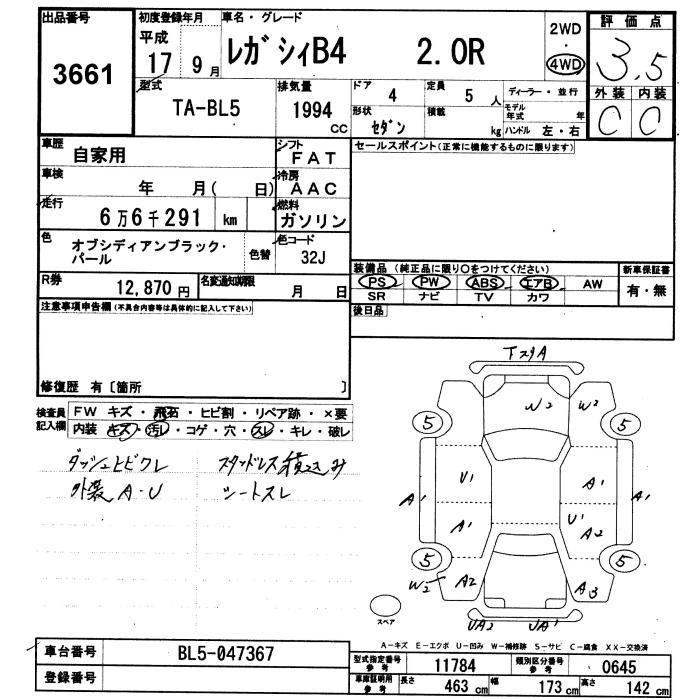 出品番号 初度登録年月 車名・グレード 2WD 評価点
3661 平成 17 9 月 レガシィB4 2.0R ・ 4WD 3.5
型式 排気量 ドア 4 定員 5 人 ディーラー・並行 外装 内装
TA-BL5 1994 cc 形状 セダン 積載 kg モデル年式 年 C C
ハンドル 左・右
車歴 自家用 シフト FAT セールスポイント(正常に機能するものに限ります)
車検 年 月( 日) 冷房 AAC
走行 6万6千291 km 燃料 ガソリン
色 オブシディアンブラック・パール 色替 色コード 32J
装備品 (純正品に限り○をつけてください) 新車保証書
R券 12,870 円 名変通知期限 月 日 PS PW ABS エアB AW 有・無
SR ナビ TV カワ
注意事項申告欄(不具合内容等は具体的に記入して下さい) 後日品
修復歴 有〔箇所 〕
検査員記入欄 FW キズ・飛石・ヒビ割・リペア跡・×要
内装 キズ・汚レ・コゲ・穴・スレ・キレ・破レ
ダッシュヒビワレ スタッドレス積込み
外装A・U シートスレ
TスリA
W2 W2
5 5
U1 A1
A1 A1
A1 U1 A2
5 5
W2 A2 A3
スペア
UA2 UA1
A-キズ E-エクボ U-凹み W-補修跡 S-サビ C-腐食 XX-交換済
車台番号 BL5-047367
型式指定番号 参考 11784 類別区分番号 参考 0645
登録番号
車庫証明用 参考 長さ 463 cm 幅 173 cm 高さ 142 cm